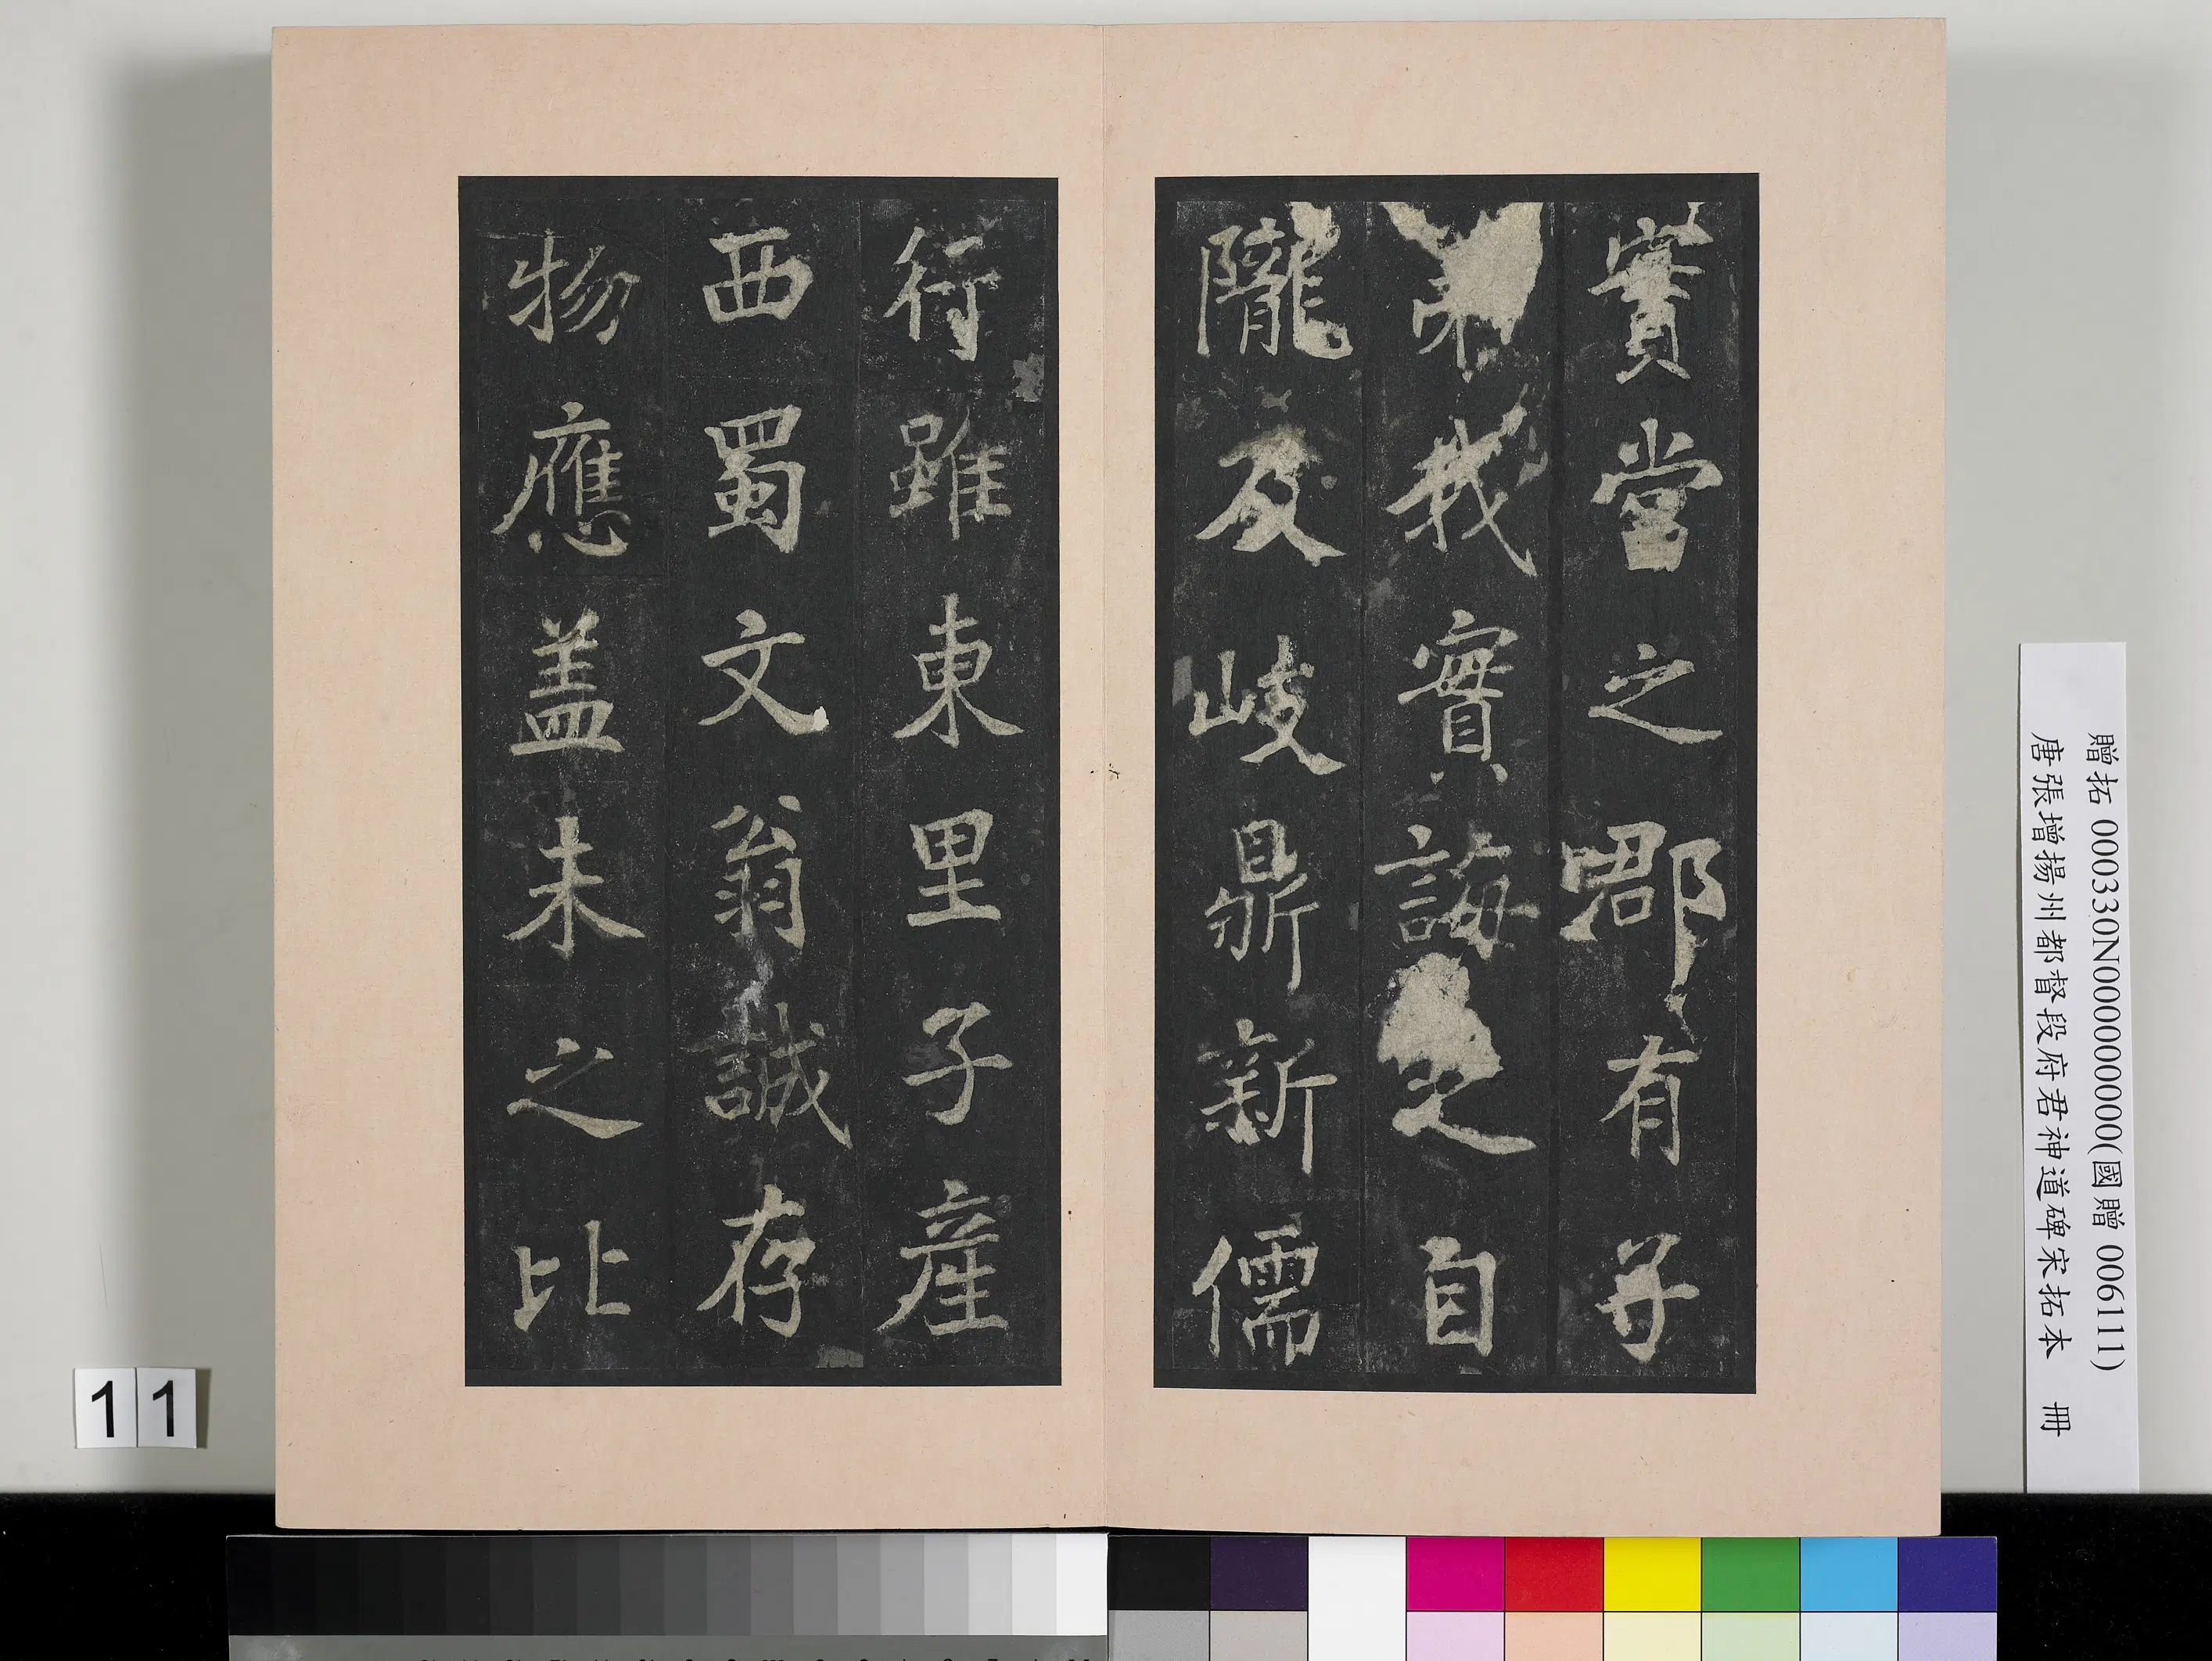 實當之郡有子
弟我實誨之自
隴及岐鼎新儒
行雖東里子產
西蜀文翁誠存
物應盖未之比
贈拓 000330N000000000(國贈 006111)
唐張增揚州都督段府君神道碑宋拓本 冊
11